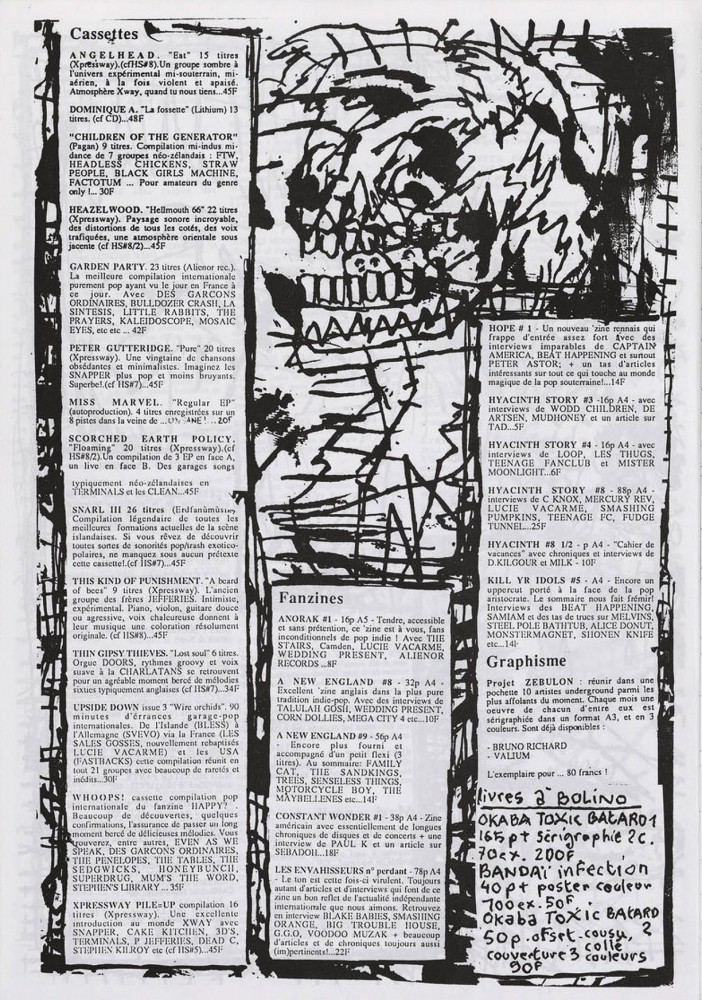 Cassettes
ANGELHEAD. "Eat" 15 titres
(Xpressway).(cfHS#8).Un groupe sombre à
l'univers expérimental mi-souterrain, mi-
aérien, à la fois violent et apaisé.
Atmosphère Xway, quand tu nous tiens...45F
DOMINIQUE A. "La fossette" (Lithium) 13
titres. (cf CD)...48F
"CHILDREN OF THE GENERATOR"
(Pagan) 9 titres. Compilation mi-indus mi-
dance de 7 groupes néo-zélandais : FTW,
HEADLESS CHICKENS, STRAW
PEOPLE, BLACK GIRLS MACHINE,
FACTOTUM ... Pour amateurs du genre
only !... 30F
HEAZELWOOD. "Hellmouth 66" 22 titres
(Xpressway). Paysage sonore incroyable,
des distortions de tous les cotés, des voix
trafiquées, une atmosphère orientale sous
jacente (cf HS#8/2)...45F
GARDEN PARTY. 23 titres (Alienor rec.).
La meilleure compilation internationale
purement pop ayant vu le jour en France à
ce jour. Avec DES GARCONS
ORDINAIRES, BULLDOZER CRASH, LA
SINTESIS, LITTLE RABBITS, THE
PRAYERS, KALEIDOSCOPE, MOSAIC
EYES, etc etc ... 42F
PETER GUTTERIDGE. "Pure" 20 titres
(Xpressway). Une vingtaine de chansons
obsédantes et minimalistes. Imaginez les
SNAPPER plus pop et moins bruyants.
Superbe!.(cf HS#7)...45F
MISS MARVEL. "Regular EP"
(autoproduction). 4 titres enregistrées sur un
8 pistes dans la veine de ... 20F
SCORCHED EARTH POLICY.
"Floaming" 20 titres (Xpressway).(cf
HS#8/2).Un compilation de 3 EP en face A,
un live en face B. Des garages songs
typiquement néo-zélandaises en
TERMINALS et les CLEAN...45F
SNARL III 26 titres (Erdfanùmùsin).
Compilation légendaire de toutes les
meilleures formations actuelles de la scène
islandaises. Si vous rêvez de découvrir
toutes sortes de sonorités pop/trash exotico-
polaires, ne manquez sous aucun prétexte
cette cassette!.(cf HS#7)...45F
THIS KIND OF PUNISHMENT. "A beard
of bees" 9 titres (Xpressway). L'ancien
groupe des frères JEFFERIES. Intimiste,
expérimental. Piano, violon, guitare douce
ou agressive, voix chaleureuse donnent à
leur musique une coloration résolument
originale. (cf HS#8)...45F
THIN GIPSY THIEVES. "Lost soul" 6 titres.
Orgue DOORS, rythmes groovy et voix
suave à la CHARLATANS se retrouvent
pour un agréable moment bercé de mélodies
sixties typiquement anglaises (cf HS#7)...34F
UPSIDE DOWN issue 3 "Wire orchids". 90
minutes d'érrances garage-pop
internationales. De l'Islande (BLESS) à
l'Allemagne (SVEVO) via la France (LES
SALES GOSSES, nouvellement rebaptisés
LUCIE VACARME) et les USA
(FASTBACKS) cette compilation réunit en
tout 21 groupes avec beaucoup de raretés et
inédits...30F
WHOOPS! cassette compilation pop
internationale du fanzine HAPPY? .
Beaucoup de découvertes, quelques
confirmations, l'assurance de passer un long
moment bercé de délicieuses mélodies. Vous
y trouverez, entre autres, EVEN AS WE
SPEAK, DES GARCONS ORDINAIRES,
THE PENELOPES, THE TABLES, THE
SEDGWICKS, HONEYBUNCH,
SUPERDRUG, MUM'S THE WORD,
STEPHEN'S LIBRARY ... 35F
XPRESSWAY PILE=UP compilation 16
titres (Xpressway). Une excellente
introduction au monde XWAY avec
SNAPPER, CAKE KITCHEN, 3D'S,
TERMINALS, P JEFFERIES, DEAD C,
STEPHEN KILROY etc (cf HS#5)...45F
Fanzines
ANORAK #1 - 16p A5 - Tendre, accessible
et sans prétention, ce 'zine est à vous, fans
inconditionnels de pop indie ! Avec THE
STAIRS, Camden, LUCIE VACARME,
WEDDING PRESENT, ALIENOR
RECORDS ...8F
A NEW ENGLAND #8 - 32p A4 -
Excellent 'zine anglais dans la plus pure
tradition indie-pop. Avec des interviews de
TALULAH GOSH, WEDDING PRESENT,
CORN DOLLIES, MEGA CITY 4 etc...10F
A NEW ENGLAND #9 - 56p A4
- Encore plus fourni et
accompagné d'un petit flexi (3
titres). Au sommaire: FAMILY
CAT, THE SANDKINGS,
TREES, SENSELESS THINGS,
MOTORCYCLE BOY, THE
MAYBELLENES etc...14F
CONSTANT WONDER #1 - 38p A4 - Zine
américain avec essentiellement de longues
chroniques de disques et de concerts + une
interview de PAUL K et un article sur
SEBADOH...18F
LES ENVAHISSEURS n° perdant - 78p A4
- Le ton est cette fois-ci virulent. Toujours
autant d'articles et d'interviews qui font de ce
zine un bon reflet de l'actualité indépendante
internationale que nous aimons. Retrouvez
en interview BLAKE BABIES, SMASHING
ORANGE, BIG TROUBLE HOUSE,
G.G.O, VOODOO MUZAK + beaucoup
d'articles et de chroniques toujours aussi
(im)pertinents!...22F
HOPE # 1 - Un nouveau 'zine rennais qui
frappe d'entrée assez fort avec des
interviews imparables de CAPTAIN
AMERICA, BEAT HAPPENING et surtout
PETER ASTOR; + un tas d'articles
intéressants sur tout ce qui touche au monde
magique de la pop souterraine!...14F
HYACINTH STORY #3 -16p A4 - avec
interviews de WODD CHILDREN, DE
ARTSEN, MUDHONEY et un article sur
TAD...5F
HYACINTH STORY #4 - 16p A4 - avec
interviews de LOOP, LES THUGS,
TEENAGE FANCLUB et MISTER
MOONLIGHT...6F
HYACINTH STORY #8 - 88p A4 -
interviews de C KNOX, MERCURY REV,
LUCIE VACARME, SMASHING
PUMPKINS, TEENAGE FC, FUDGE
TUNNEL...25F
HYACINTH #8 1/2 - p A4 - "Cahier de
vacances" avec chroniques et interviews de
D.KILGOUR et MILK - 10F
KILL YR IDOLS #5 - A4 - Encore un
uppercut porté à la face de la pop
aristocrate. Le sommaire nous fait frémir!
Interviews des BEAT HAPPENING,
SAMIAM et des tas de trucs sur MELVINS,
STEEL POLE BATHTUB, ALICE DONUT,
MONSTERMAGNET, SHONEN KNIFE
etc...14F
Graphisme
Projet ZEBULON : réunir dans une
pochette 10 artistes underground parmi les
plus affolants du moment. Chaque mois une
oeuvre de chacun d'entre eux est
sérigraphiée dans un format A3, et en 3
couleurs. Sont déjà disponibles :
- BRUNO RICHARD
- VALIUM
L'exemplaire pour ... 80 francs !
livres à BOLINO
OKABA TOXIC BATARD 1
165 pt sérigraphié 2c.
70ex. 200F
BANDAI infection
40 pt poster couleur
700ex. 50F.
Okaba TOXIC BATARD 2
50p. ofset. cousu,
collé
couverture 3 couleurs
90F